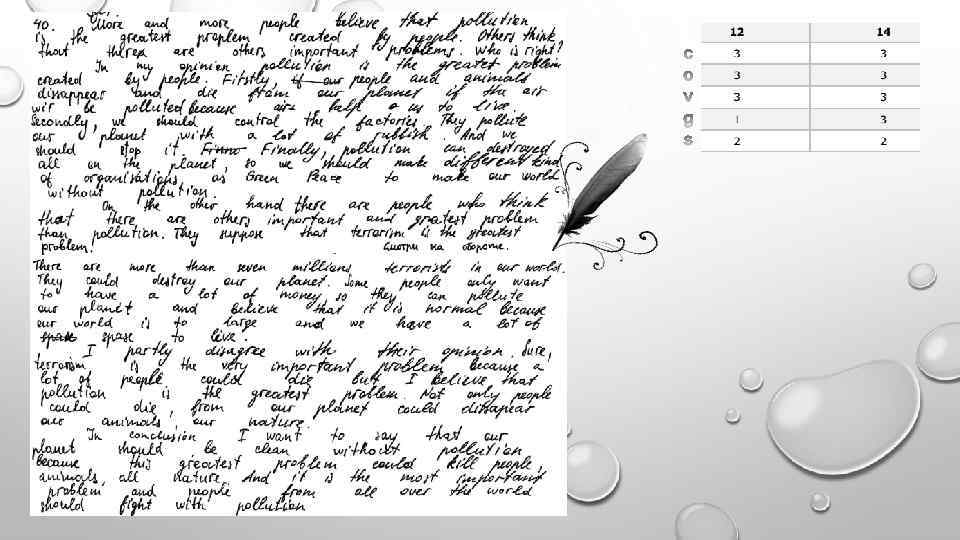 40. More and more people believe that pollution
is the greatest proplem created by people. Others think
that therea are others important problems. Who is right?
In my opinion pollution is the greatest problem
created by people. Fitstly, if our people and animals
dissappear and die from our planet if the air
wir be polluted because air help us to live.
Secondly, we should control the factories. They pollute
our planet with a lot of rubbish. And we
should stop it. Finno Finally, pollution can destroyed
all on the planet, so we should make different kind
of organisations, as Green Peace to make our world
without pollution.
On the other hand there are people who think
that there are others important and greatest problem
than pollution. They suppose that terrorism is the greatest
problem!
Смотри на обороте.
There are more than seven millions terrorists in our world.
They could destroy our planet. Some people only want
to have a lot of money, so they can pollute
our planet and believe that it is normal because
our world is to large and we have a lot of
spase spase to live.
I partly disagree with their opinion. Sure,
terrorism is the very important problem because a
lot of people could die but I believe that
pollution is the greatest problem. Not only people
could die, from our planet could dissapear
our animals, our nature.
In conclusion I want to say that our
planet should be clean without pollution
because this greatest problem could kill people,
animals, all nature. And it is the most important
problem and people from all over the world
should fight with pollution
12 14
C 3 3
O 3 3
V 3 3
g 1 3
S 2 2